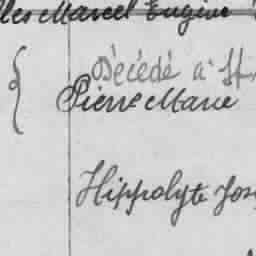 Marcel Eugène
Décédé à
Pierre Marie
Hippolyte